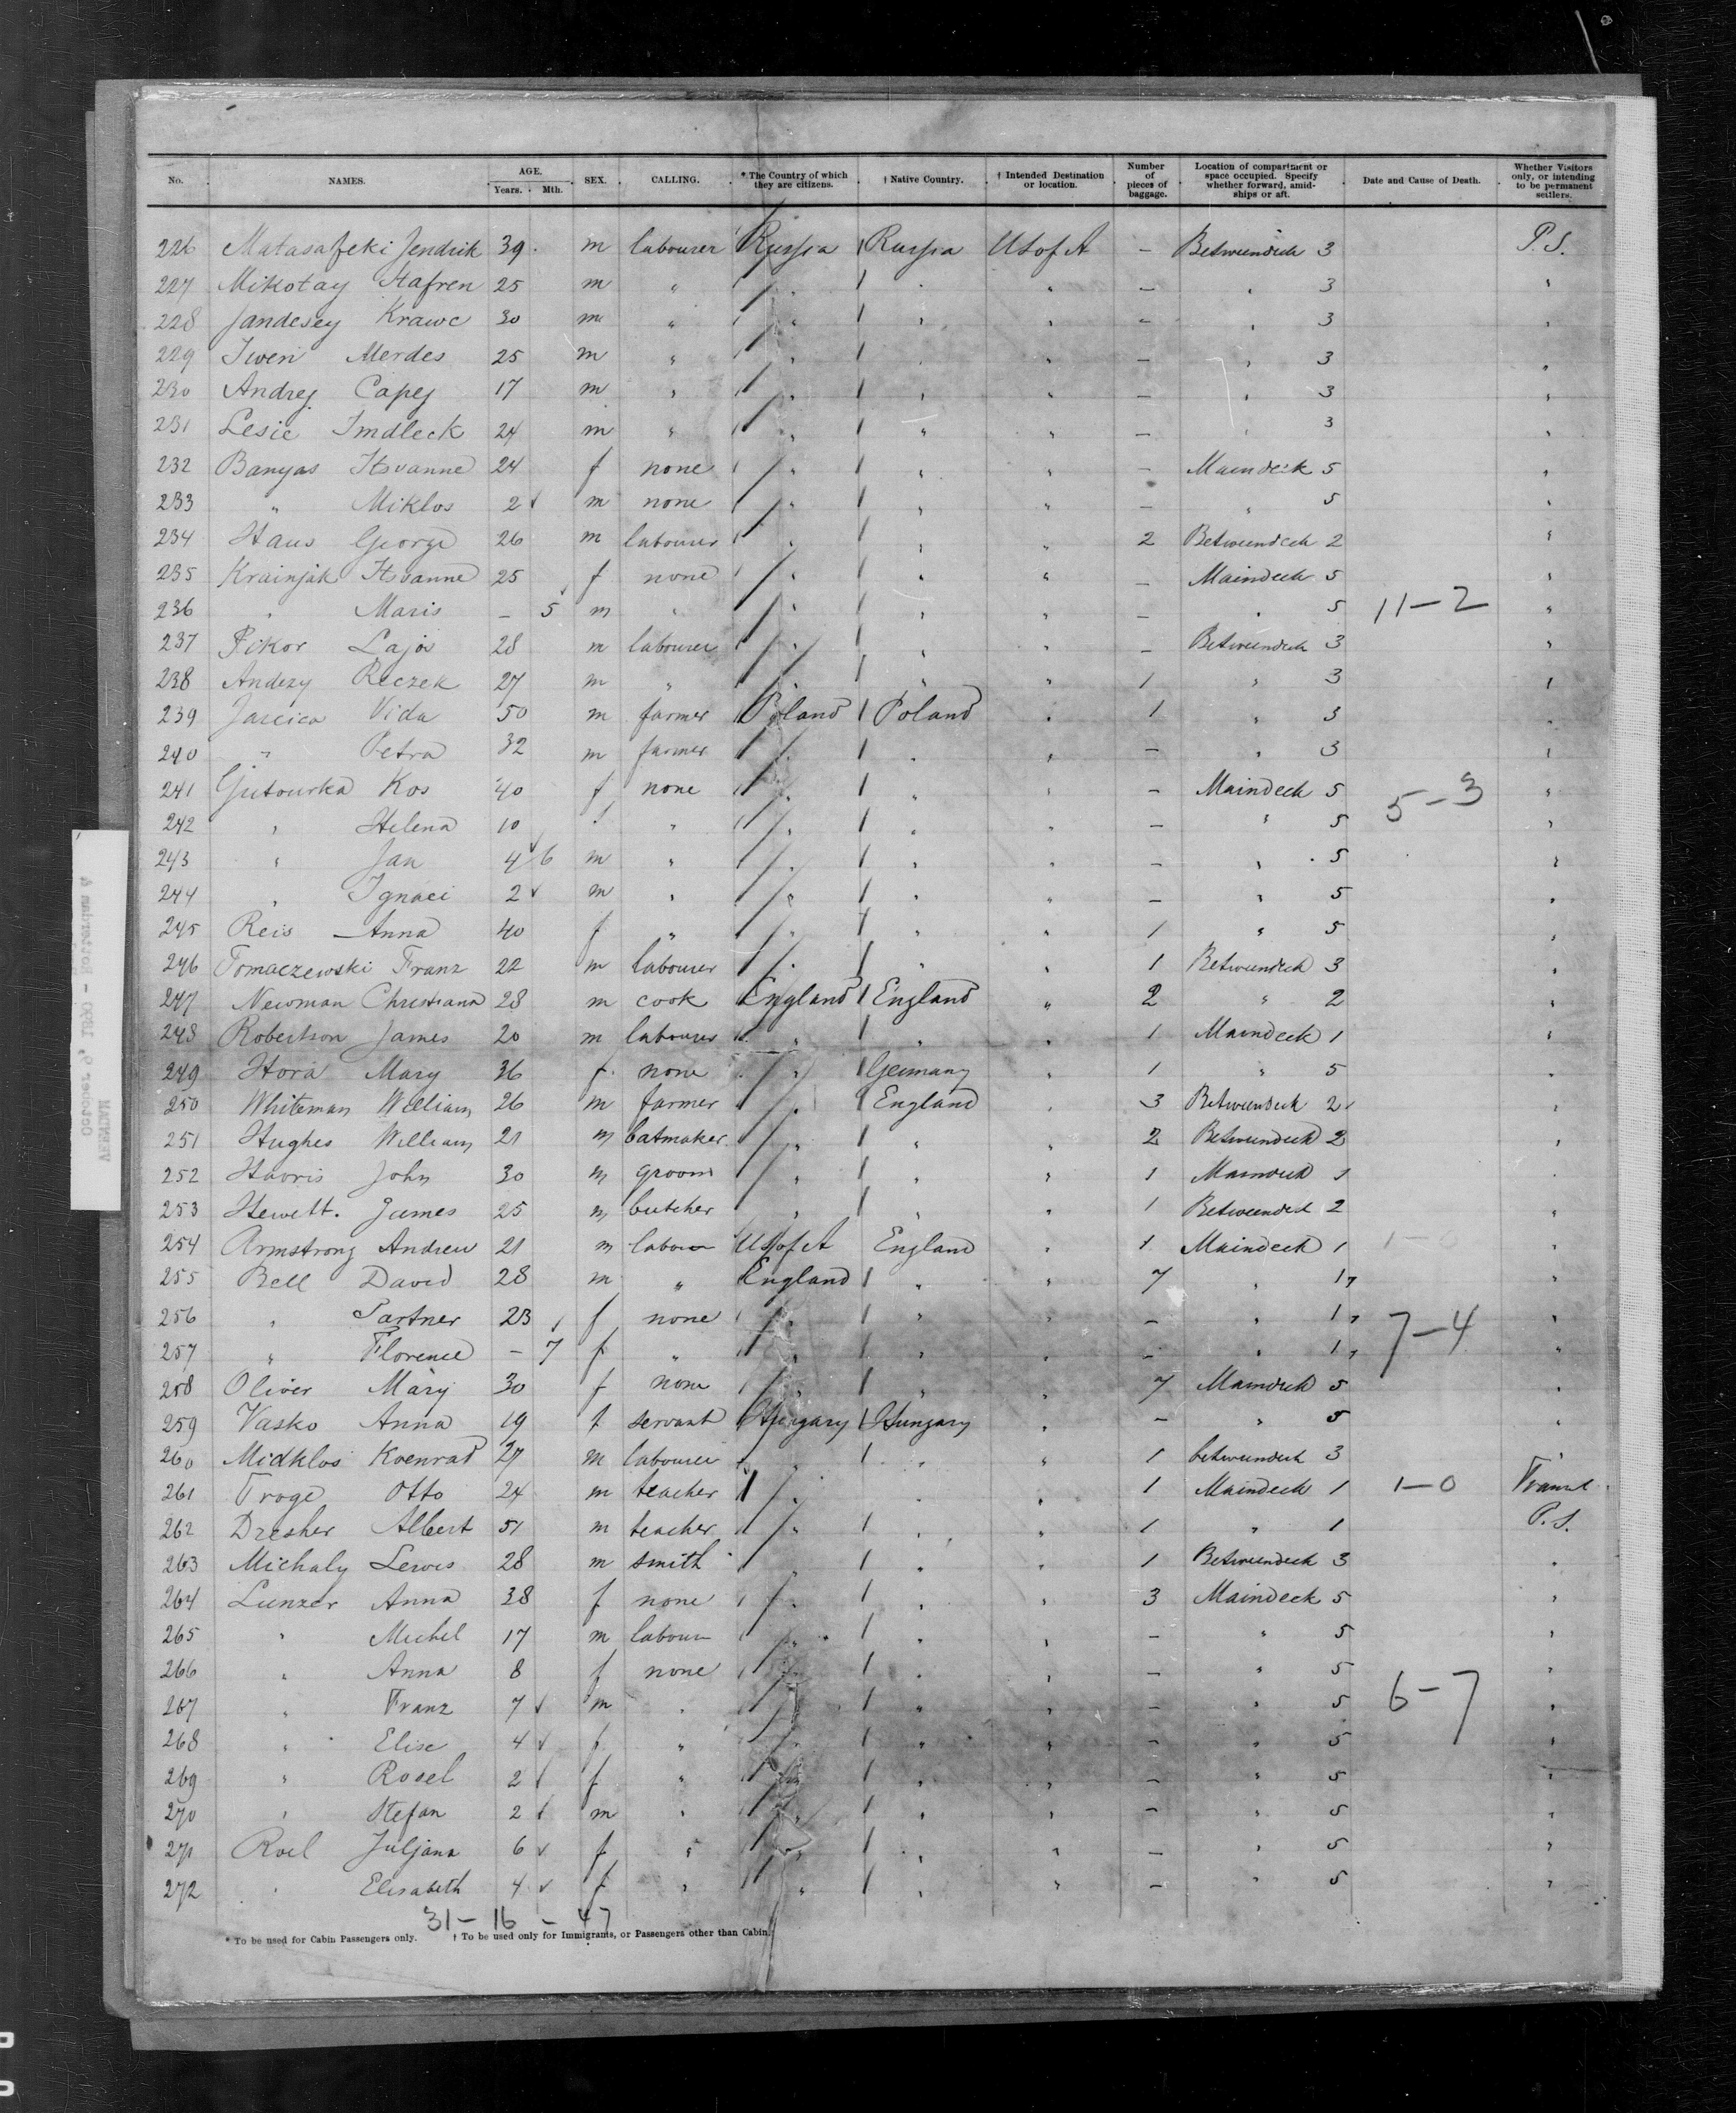 No. NAMES. AGE. Years. Mth. SEX. CALLING. * The Country of which they are citizens. † Native Country. † Intended Destination or location. Number of pieces of baggage. Location of compartment or space occupied. Specify whether forward, amidships or aft. Date and Cause of Death. Whether Visitors only, or intending to be permanent settlers.
226 Jendrik 39 m labourer Russia Russia US of A — Betweendeck 3 P.S.
227 Mikotay Stafren 25 m " " " " — " 3 "
228 Jandesey Krawc 30 m " " " " — " 3 "
229 Iwen Merdes 25 m " " " " — " 3 "
230 Andrej Capej 17 m " " " " — " 3 "
231 Lesie Imdleck 24 m " " " " — " 3 "
232 Banyas Itsvanne 24 f none " " " — Maindeck 5 "
233 " Miklos 2 m none " " " — " 5 "
234 Haus George 26 m labourer " " " 2 Betweendeck 2 "
235 Krainjak Itsvanne 25 f none " " " — Maindeck 5 "
236 " Maris — 5 m " " " " — " 5 11—2 "
237 Pikor Lajos 28 m labourer " " " — Betweendeck 3 "
238 Andezy Reczek 27 m " " " " 1 " 3 "
239 Jarcica Vida 50 m farmer Poland Poland " 1 " 3 "
240 " Petra 32 m farmer " " " — " 3 "
241 Gutourka Kos 40 f none " " " — Maindeck 5 5—3 "
242 " Helena 10 " " " " " — " 5 "
243 " Jan 4 6 m " " " " — " 5 "
244 " Ignaci 2 m " " " " — " 5 "
245 Reis Anna 40 f " " " " 1 " 5 "
246 Tomaczewski Franz 22 m labourer " " " 1 Betweendeck 3 "
247 Newman Christiana 28 m cook England England " 2 " 2 "
248 Robertson James 20 m labourer " " " 1 Maindeck 1 "
249 Hora Mary 36 f none " Germany " 1 " 5 "
250 Whiteman William 26 m farmer " England " 3 Betweendeck 2 "
251 Hughes William 21 m batmaker " " " 2 Betweendeck 2 "
252 Havris John 30 m groom " " " 1 Maindeck 1 "
253 Hewett. James 25 m butcher " " " 1 Betweendeck 2 "
254 Armstrong Andrew 21 m labour US of A England " 1 Maindeck 1 1—0 "
255 Bell David 28 m " England " " 7 " 1 "
256 " Partner 23 f none " " " — " 1 7—4 "
257 " Florence — 7 f " " " " — " 1 "
258 Oliver Mary 30 f none " " " 7 Maindeck 5 "
259 Vasko Anna 19 f servant Hungary Hungary " — " 5 "
260 Midklos Koenrad 27 m labourer " " " 1 betweendeck 3 "
261 Troge Otto 24 m teacher " " " 1 Maindeck 1 1—0
262 Dresher Albert 51 m teacher " " " 1 " 1 P.S.
263 Michaly Lewis 28 m smith " " " 1 Betweendeck 3 "
264 Lunzer Anna 38 f none " " " 3 Maindeck 5 "
265 " Michel 17 m labour " " " — " 5 "
266 " Anna 8 f none " " " — " 5 "
267 " Franz 7 m " " " " — " 5 6—7 "
268 " Elise 4 f " " " " — " 5 "
269 " Rosel 2 f " " " " — " 5 "
270 " Stefan 2 m " " " " — " 5 "
271 Roel Juljana 6 f " " " " — " 5 "
272 " Elisabeth 4 f " " " " — " 5 "
31 — 16 — 47
* To be used for Cabin Passengers only. † To be used only for Immigrants, or Passengers other than Cabin.
VEENDAM
October 9, 1890 - Rotterdam &